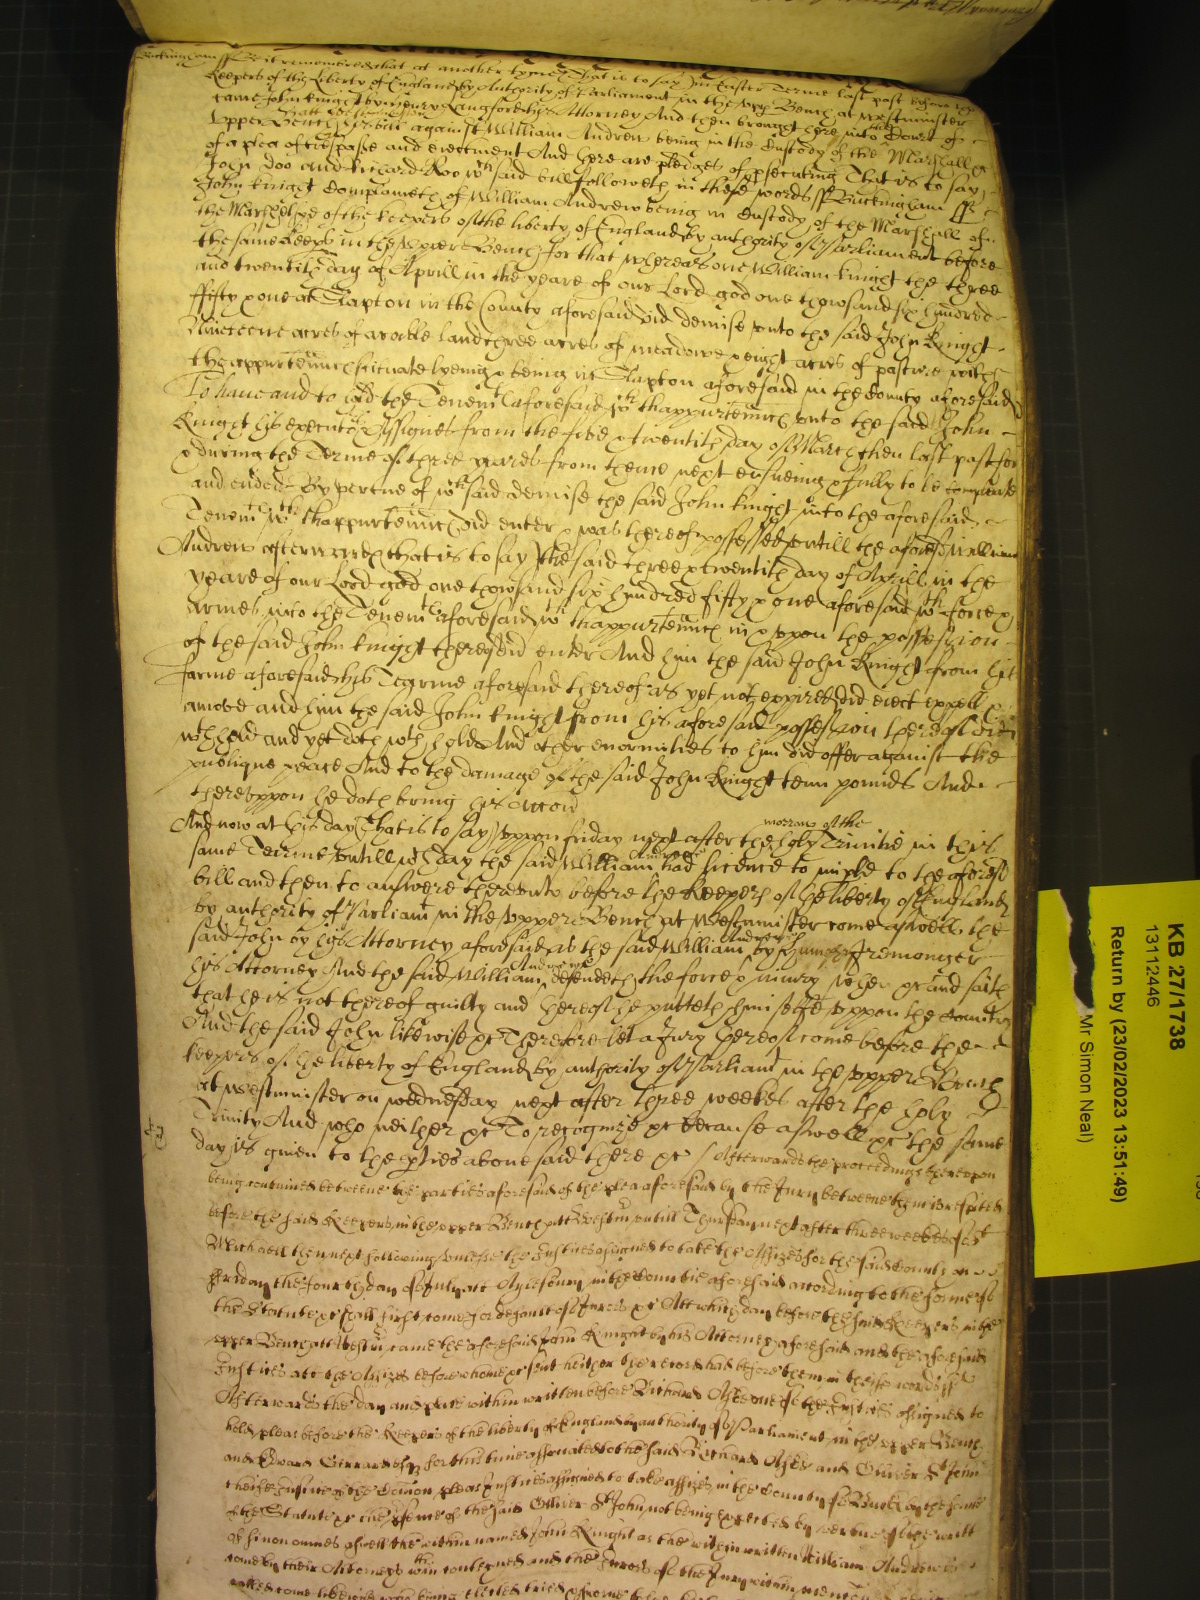 Buckingham ss Be it remembred that at another tyme That is to say in Easter Terme last past before the
Keepers of the Liberty of England by Authority of Parliament in the upper Bench at Westminster
came John Knight by Henry Langford his Attorney And then brought here into the Court of
Upper Bench his bill against William Andrew being in the Custody of the Marshall &c
of a plea of trespasse and eiectment And here are pledges of prosecuting That is to say
John Doo and Richard Roo wch said bill followeth in these words ss Buckingham ss
John Knight Complaineth of William Andrew being in Custody of the Marshall of
the Marshelsye of the keepers of the liberty of England by authority of Parliament before
the same keeps in the upper Bench for that whereas one William Knight the three
and twentith day of Aprill in the yeare of our Lord god one thowsand six hundred
fifty & one at Clapton in the County aforesaid did demise unto the said John Knight
Nineteene acres of arrable land three acres of meadowe & eight acres of pasture with
thappurtennces scituate lyeing & being in Clapton aforesaid in the County aforesaid
To haue and to hold the Tenemts aforesaid wth thappurtennces unto the said John
Knight his executors & Assignes from the five & twentith day of March then last past for
& during the Terme of three yeares from thence next ensueing & fully to be compleate
and ended By vertue of wch said demise the said John Knight into the aforesaid
Tenemts wth thappurtennces did enter & was thereof possessed untill the aforesd William
Andrew afterwards that is to say the said three & twentith day of Aprill in the
yeare of our Lord god one thowsand six hundred fifty & one aforesaid wth force &
armes into the Tenemts aforesaid wth thappurtennces in & uppon the possession
of the said John Knight thereof did enter And him the said John Knight from his
farme aforesaid his Tearme aforesaid thereof as yet not expired did eiect expell &
amove and him the said John Knight from his aforesaid possession thereof did
wthhold and yet doth wthhold And other enormities to him did offer against the
publique peace And to the damage of the said John Knight tenn pounds And
thereuppon he doth bring his accon
And now at this day (That is to say) uppon friday next after the morrow of the holy Trinitie in this
same Tearme untill wch day the said William Andrewe had licence to imple to the aforesd
bill and then to answere thereunto before the keepers of the liberty of England
by authority of Parliamt in the upper Bench at Westminster come aswell the
said John by his Attorney aforesaid as the said William Andrewe by Iremonger
his Attorney And the said William Andrewe defendeth the force & iniury when &c and saith
that he is not thereof guilty and hereof he putteth himselfe uppon the Countrey
And the said John likewise &c Therefore let a Jury hereof come before the
keepers of the liberty of England by authority of Parliamt in the upper Bench
at Westminister on Wednesday next after three weekes after the holy
Trinity And who neither &c To recognize &c because aswell &c the same
day is given to the pties aboue said there &c / Afterwards the proceedings thereupon
being continued betweene the parties aforesaid of the plea aforesaid by the Jury betweene them is respited
before the said Keepers in the upper Bench att Westmr untill Thursday next after three weekes of St
Michaell then next following unlesse the Justices assigned to take the Assizes for the said County on
Friday the fourth day of July att Aylesbury in the Countie aforesaid according to the forme of
the Statute &c shall first come for default of Jurors &c Att which day before the said Keepers in the
upper Bench att Westmr came the aforesaid John Knight by his Attorney aforesaid and the aforesaid
Justices att the Assizes before whome &c sent neither the record had before them in theise words ss
Afterwards the day and place within written before Richard Aske one of the Justices assigned to
hold pleas before the Keepers of the liberty of England by authority of Parliament in the upper Bench
and Edward Gerrard esq for this time associated to the said Richard Aske and Oliver St John
cheife Justice of the Comon pleas Justices assigned to take assizes in the County of Buck by the forme
of the Statute &c the psence of the said Oliver St John not being expected by vertue of the writt
of si non omnes aswell the within named John Knight as the within written William Andrewe
come by their Attorneys win conteyned and the Jurors of the Jury within
KB 27/1738
13112446
Return by (23/02/2023 13:51:49)
Mr Simon Neal)